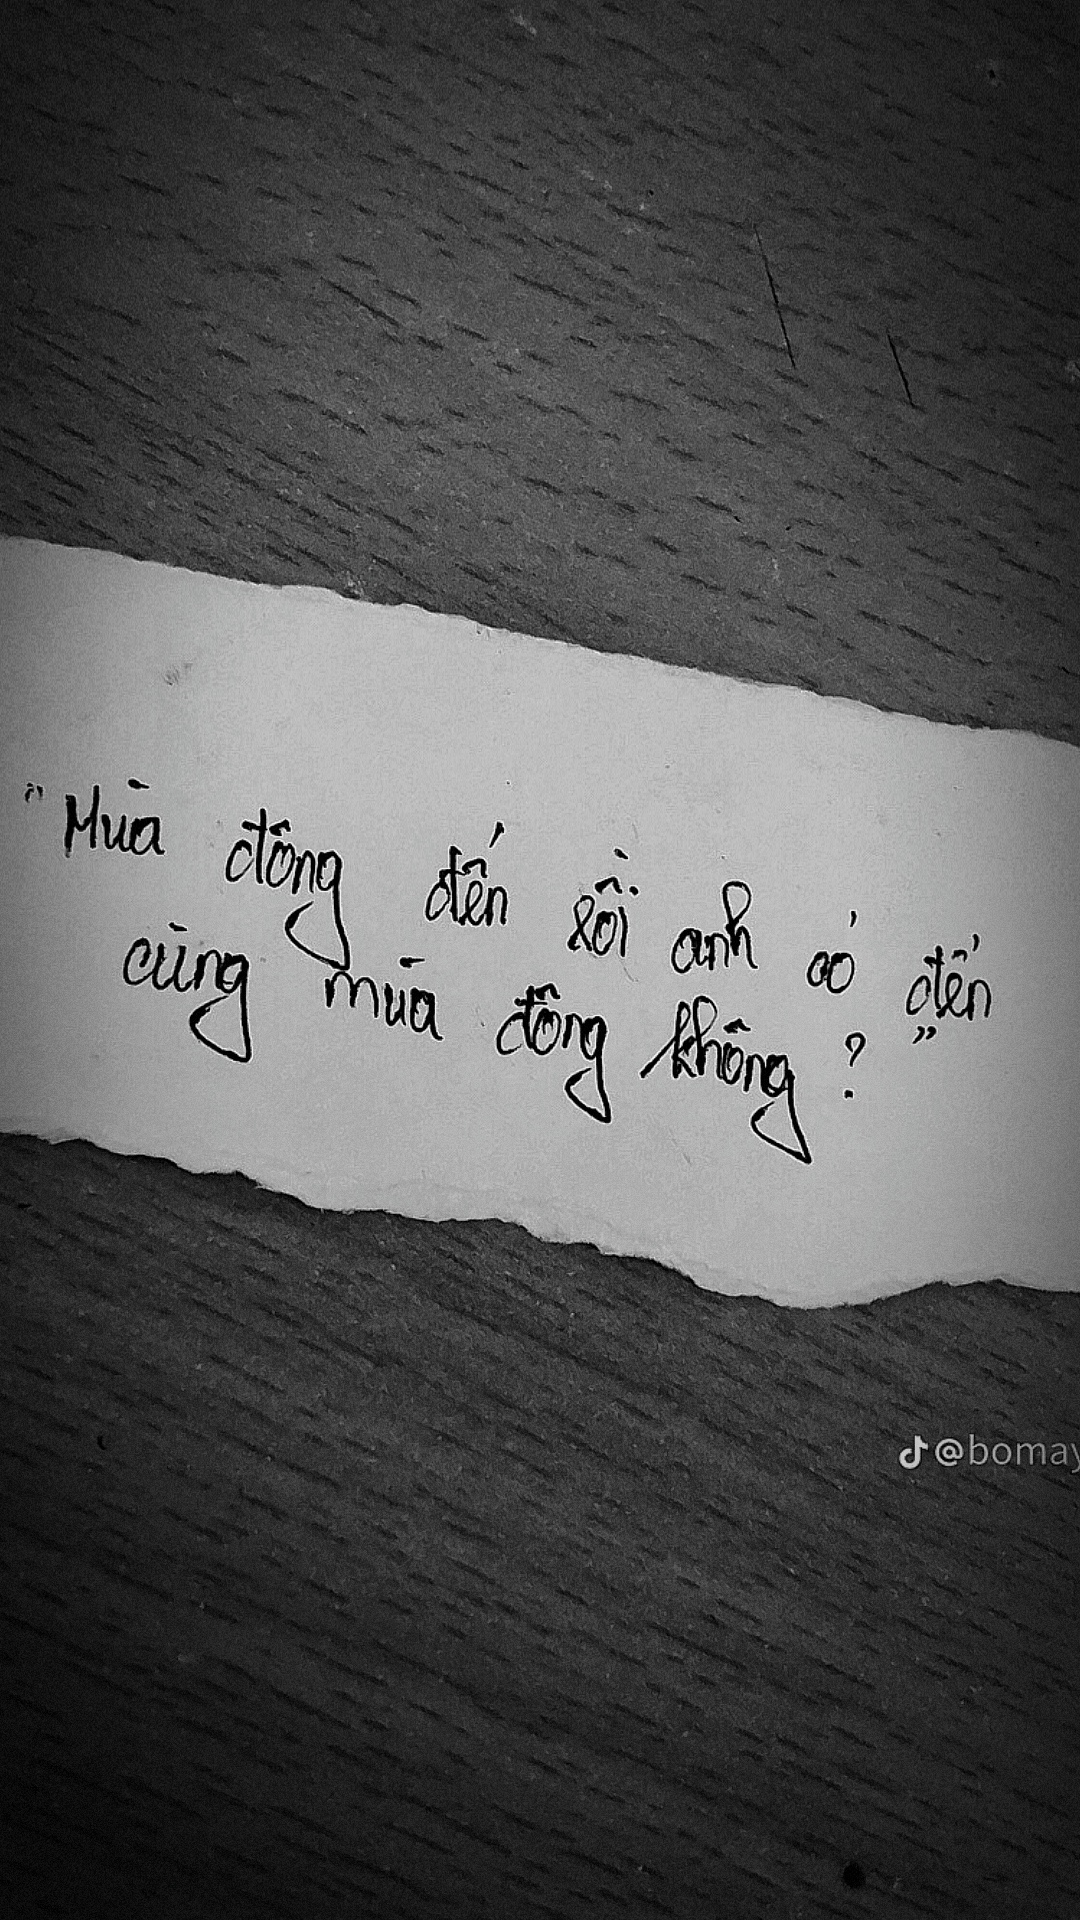 "Mùa đông đến rồi anh có đến
cùng mùa đông không ? "
@bomay